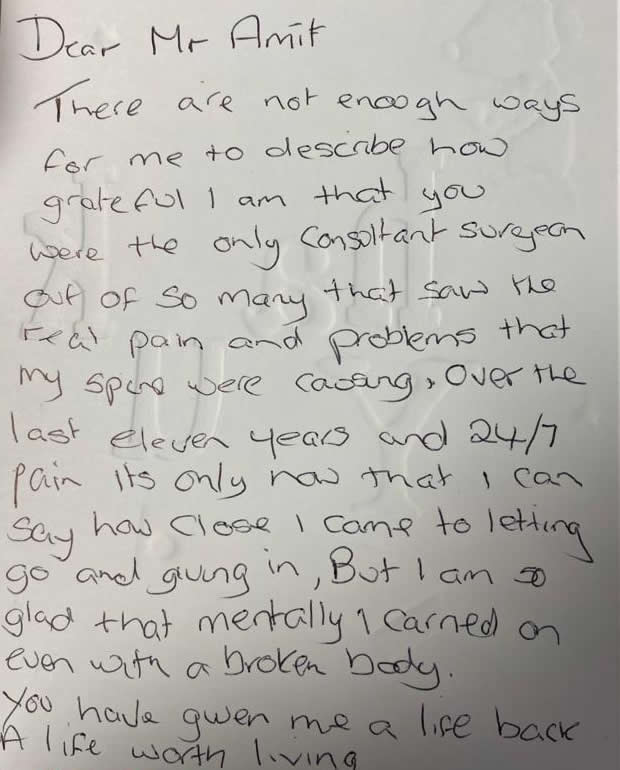 Dear Mr Amit
There are not enough ways
for me to describe how
grateful I am that you
were the only Consultant surgeon
out of so many that saw the
real pain and problems that
my spine were causing, Over the
last eleven years and 24/7
pain its only now that I can
say how close I came to letting
go and giving in, But I am so
glad that mentally I carried on
even with a broken body.
You have given me a life back
A life worth living